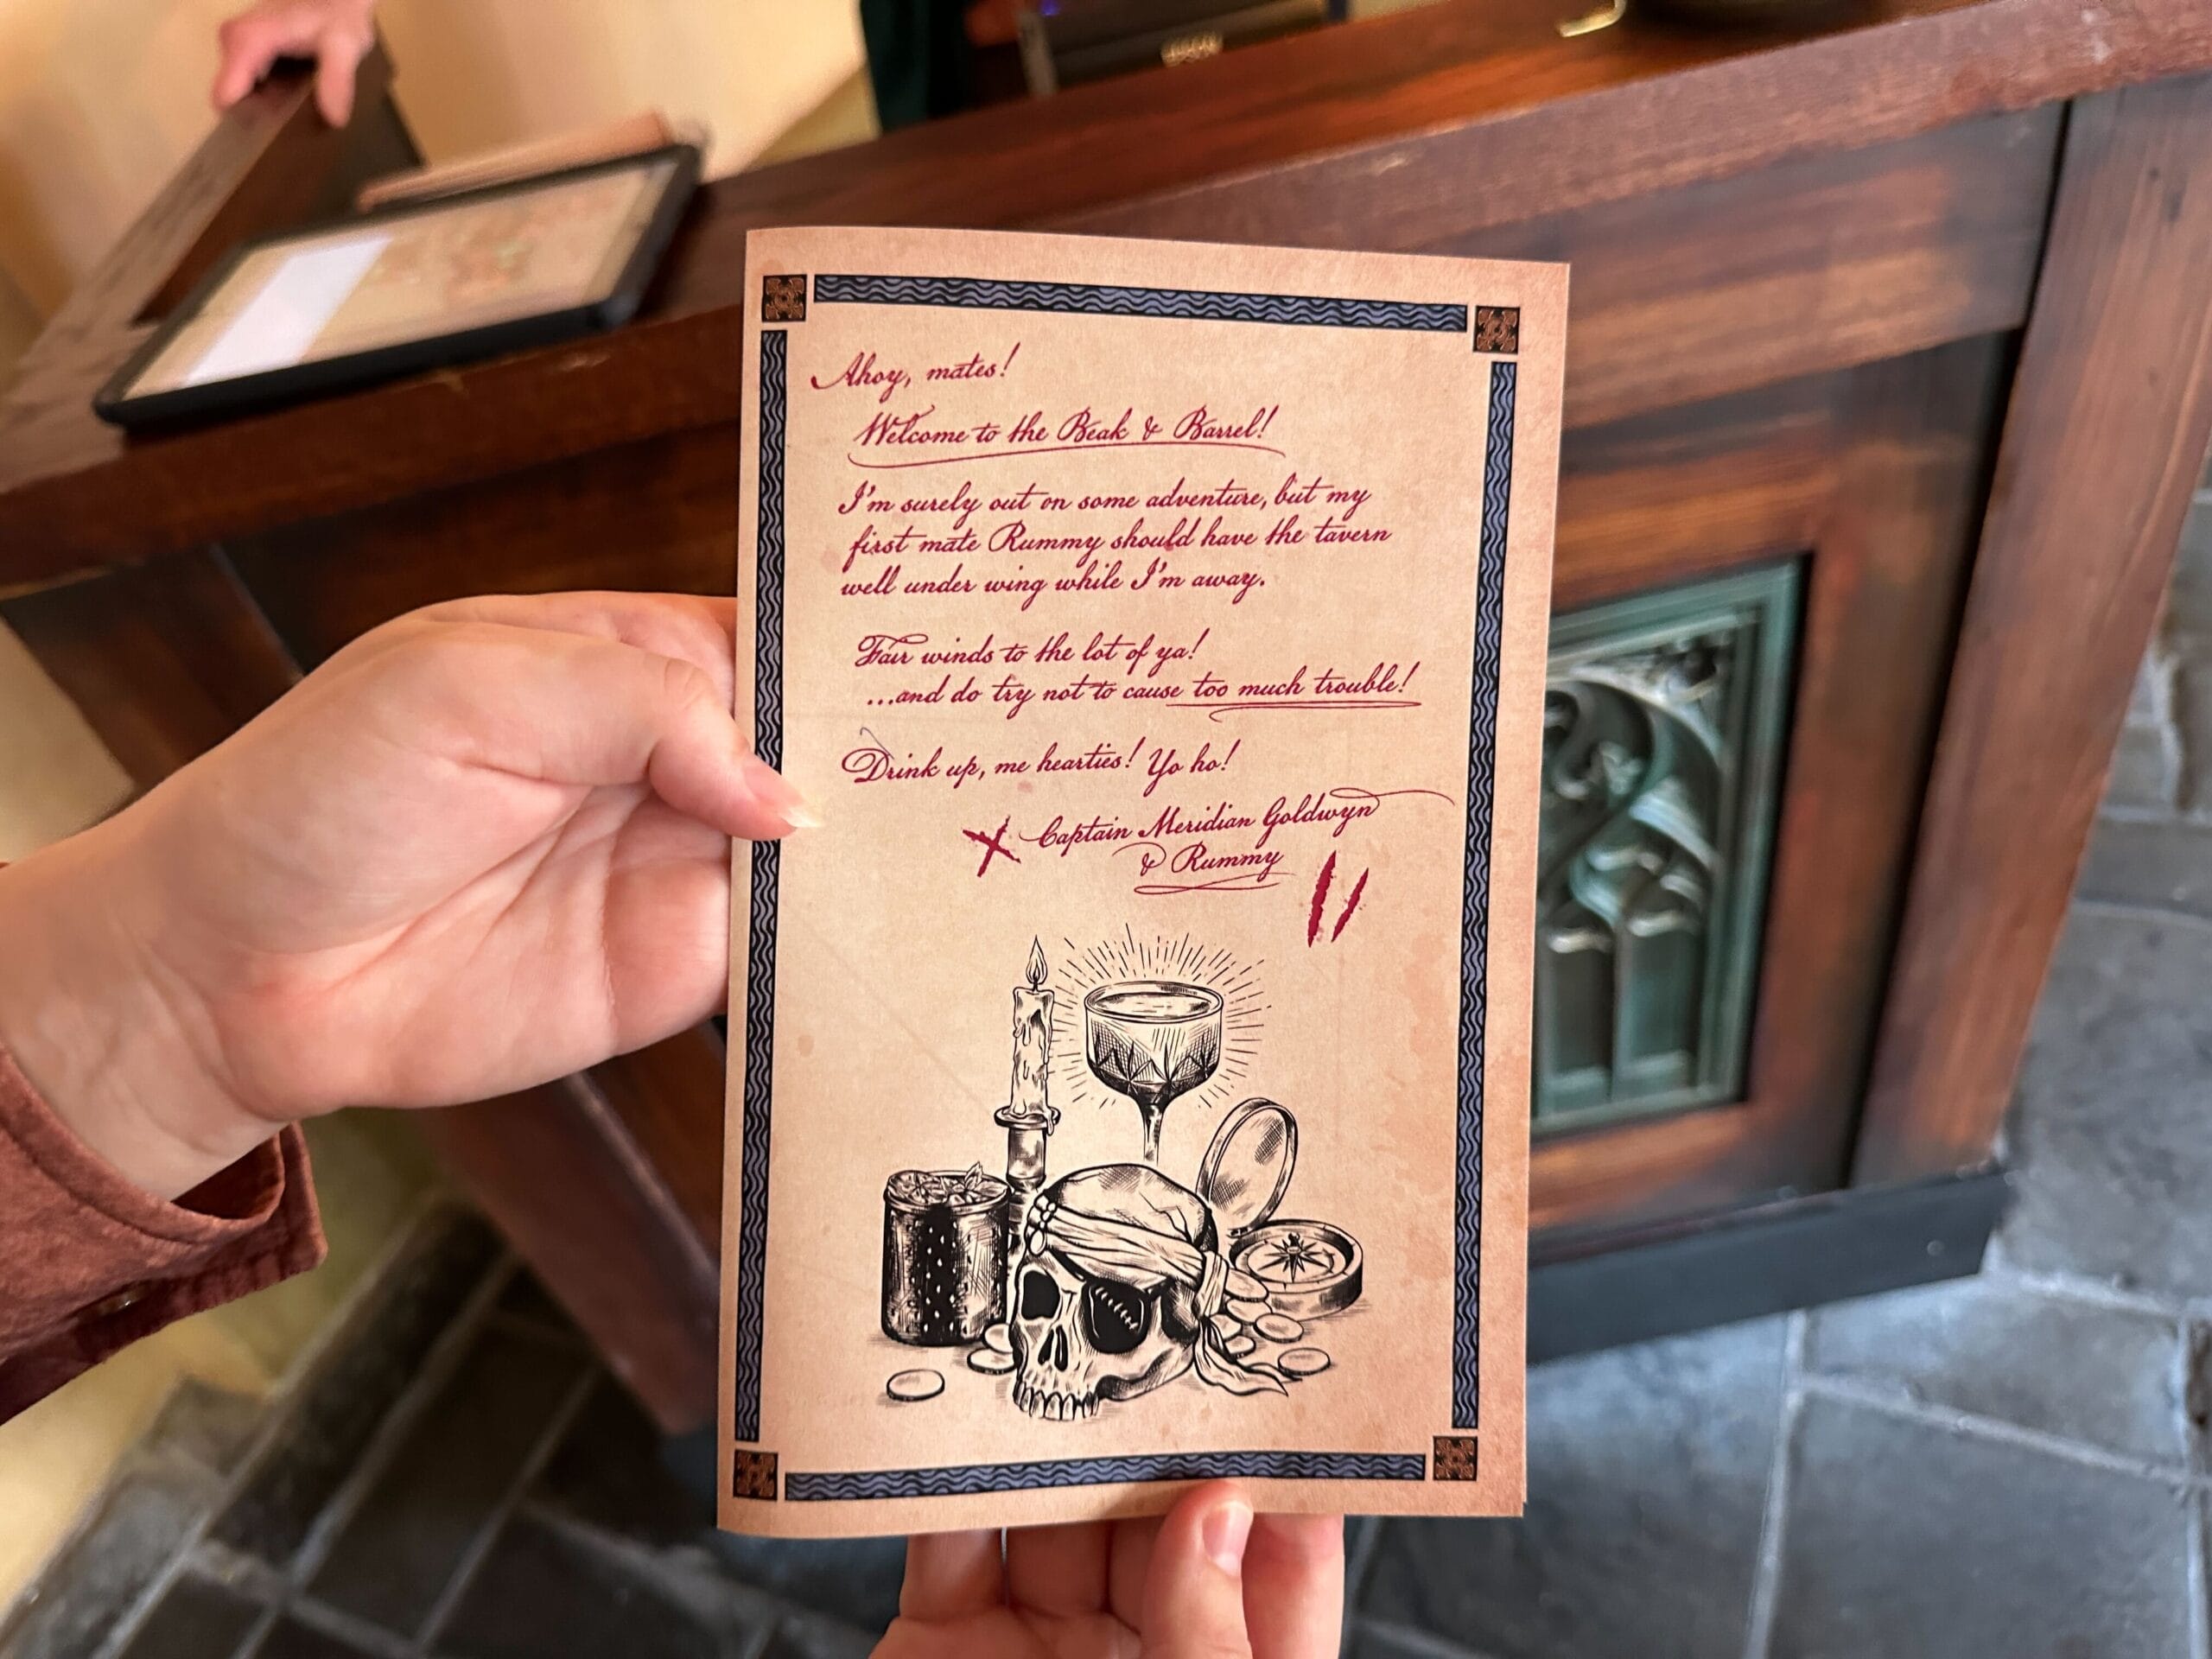 EPSON
Ahoy, mates!
Welcome to the Beak & Barrel!
I'm surely out on some adventure, but my
first mate Rummy should have the tavern
well under wing while I'm away.
Fair winds to the lot of ya!
...and do try not to cause too much trouble!
Drink up, me hearties! Yo ho!
X Captain Meridian Goldwyn
& Rummy